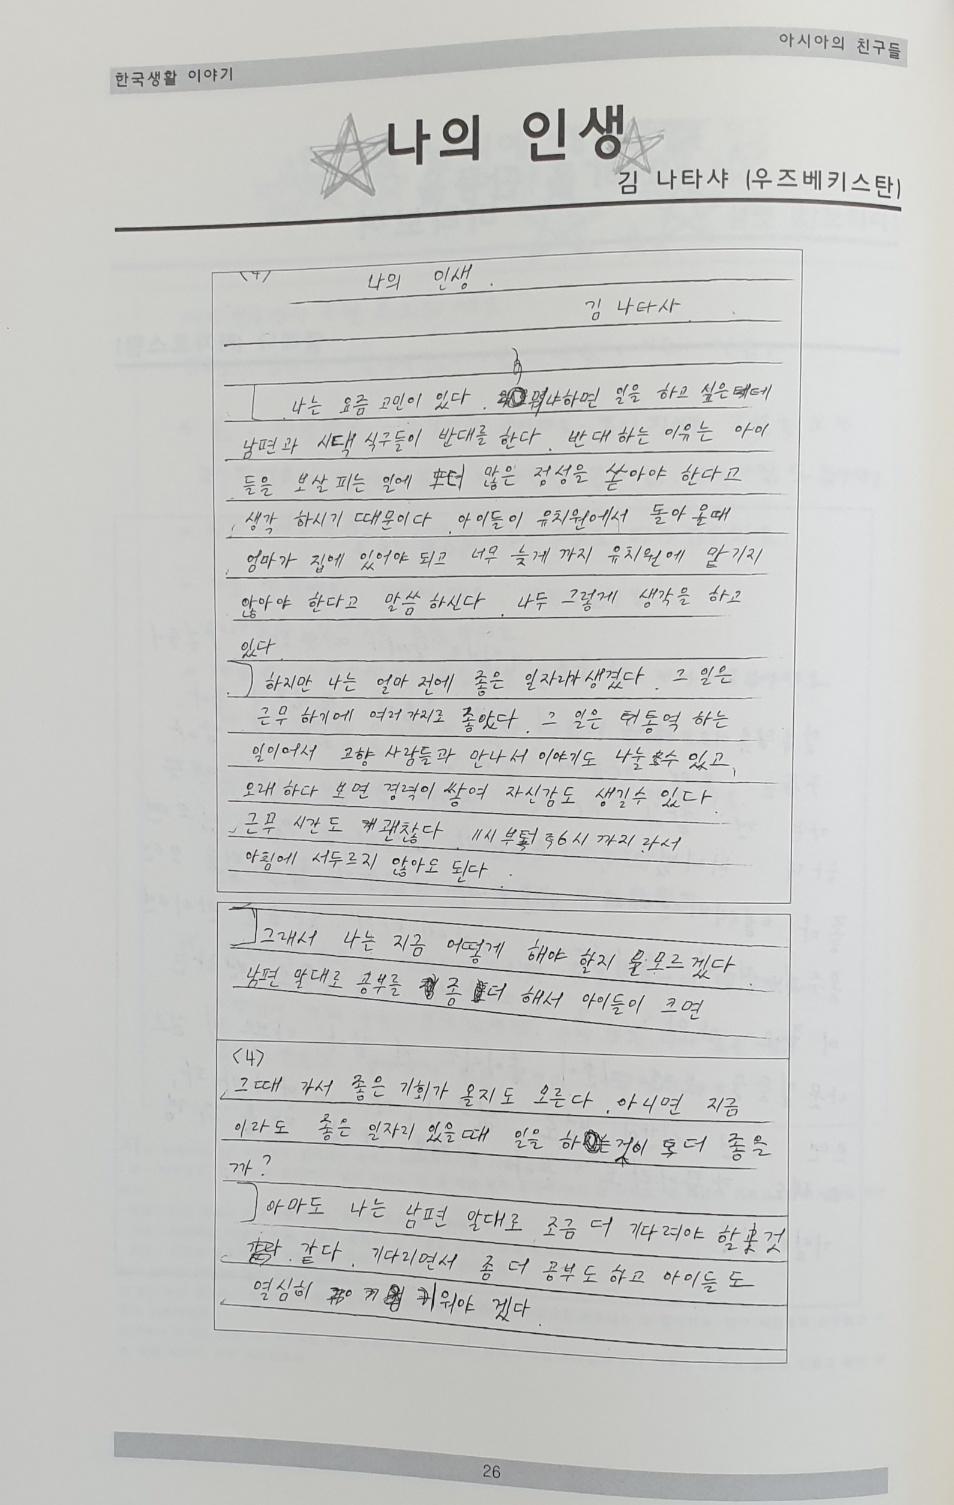 아시아의 친구들
한국생활 이야기
나의 인생
김 나타샤 (우즈베키스탄)
<4>
나의 인생.
김 나타샤.
나는 요즘 고민이 있다. 왜냐하면 일을 하고 싶은데
남편과 시댁 식구들이 반대를 한다. 반대하는 이유는 아이
들을 보살피는 일에 더 많은 정성을 쏟아야 한다고
생각 하시기 때문이다. 아이들이 유치원에서 돌아 올때
엄마가 집에 있어야 되고 너무 늦게 까지 유치원에 맡기지
않아야 한다고 말씀 하신다. 나두 그렇게 생각을 하고
있다.
하지만 나는 얼마 전에 좋은 일자리가 생겼다. 그 일은
근무 하기에 여러가지로 좋았다. 그 일은 통역 하는
일이어서 고향 사람들과 만나서 이야기도 나눌 수 있고,
오래 하다 보면 경력이 쌓여 자신감도 생길수 있다.
근무 시간도 괜찮다. 11시 부터 6시 까지 라서
아침에 서두르지 않아도 된다.
그래서 나는 지금 어떻게 해야 할지 모르겠다.
남편 말대로 공부를 좀 더 해서 아이들이 크면
<4>
그때 가서 좋은 기회가 올지도 모른다. 아니면 지금
이라도 좋은 일자리 있을때 일을 하는 것이 더 좋을
까?
아마도 나는 남편 말대로 조금 더 기다려야 할 것
같다. 기다리면서 좀 더 공부도 하고 아이들도
열심히 키워야 겠다.
26